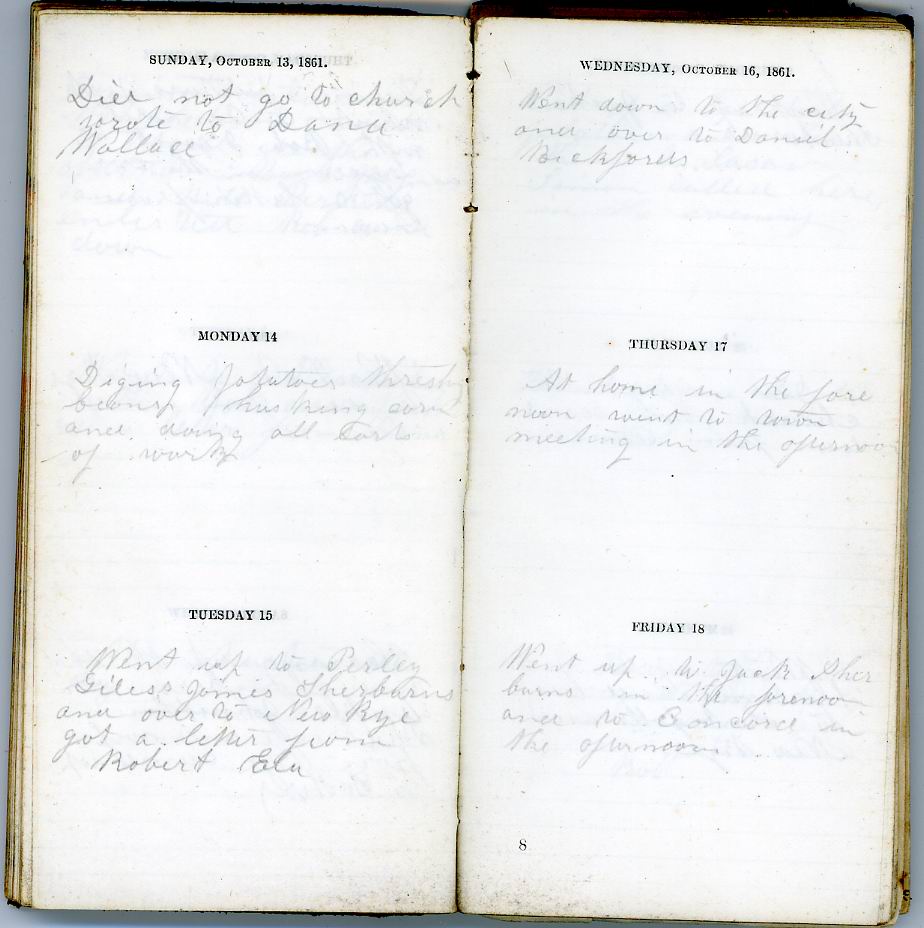 SUNDAY, OCTOBER 13, 1861.
Did not go to church
wrote to Dana
Wallace
MONDAY 14
Diging potatoes thresh
beans husking corn
and doing all sorts
of work
TUESDAY 15
Went up to Perley
Giles James Sherburns
and over to New Rye
got a letter from
Robert Ela
WEDNESDAY, OCTOBER 16, 1861.
Went down to the city
and over to Daniel
Bickfords
THURSDAY 17
At home in the fore
noon went to town
meeting in the afternoon
FRIDAY 18
Went up to Jack Sher
burns in the forenoon
and to Concord in
the afternoon
8